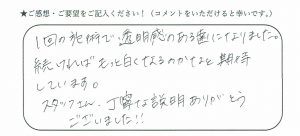 ★ご感想・ご要望をご記入ください！（コメントをいただけると幸いです。）
1回の施術で、透明感のある歯になりました。
続ければもっと白くなるのかなと期待
しています。
スタッフさん、丁寧な説明ありがとう
ございました!!